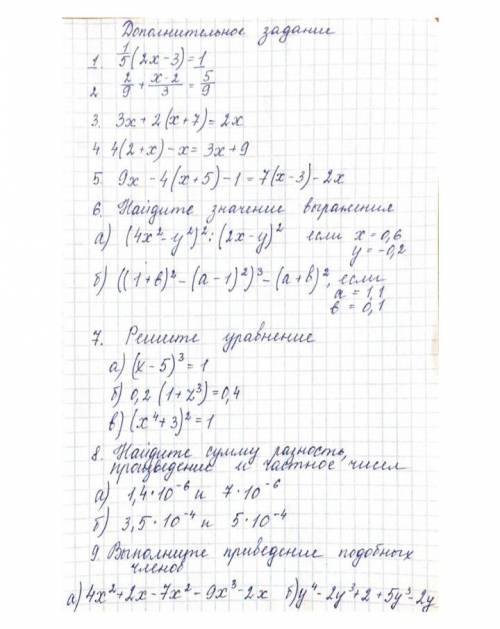 Дополнительное задание
1. 1/5 (2x-3)=1
2. 2/9 + (x-2)/3 = 5/9
3. 3x+2(x+7)=2x
4. 4(2+x)-x=3x+9
5. 9x-4(x+5)-1=7(x-3)-2x
6. Найдите значение выражения
а) (4x²-y²)²:(2x-y)² если x=0,6
y=-0,2
б) ((1+в)²-(а-1)²)³-(а+в)², если
а=1,1
в=0,1
7. Решите уравнение
а) (x-5)³=1
б) 0,2(1+z³)=0,4
в) (x⁴+3)²=1
8. Найдите сумму разность,
произведение и частное чисел
а) 1,4·10⁻⁶ и 7·10⁻⁶
б) 3,5·10⁻⁴ и 5·10⁻⁴
9. Выполните приведение подобных
членов
а) 4x²+2x-7x²-9x³-2x б) y⁴-2y³+2+5y³-2y